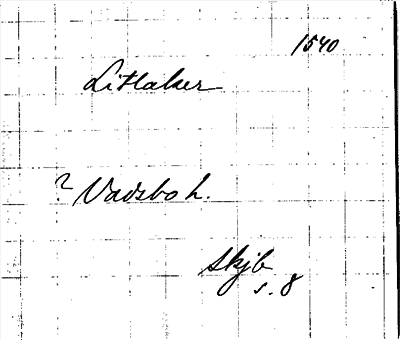 1540
Litlaker
? Vadsbo h.
skjb
s. 8